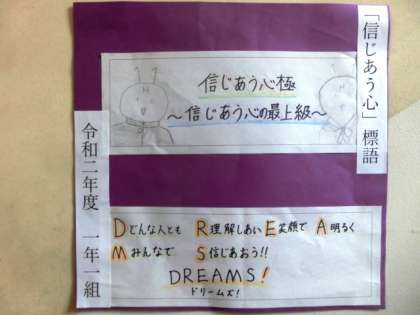 「信じあう心」標語
信じあう心極
～信じあう心の最上級～
令和二年度 一年一組
Dどんな人とも R理解しあい E笑顔で A明るく
Mみんなで S信じあおう!!
DREAMS!
ドリームズ!